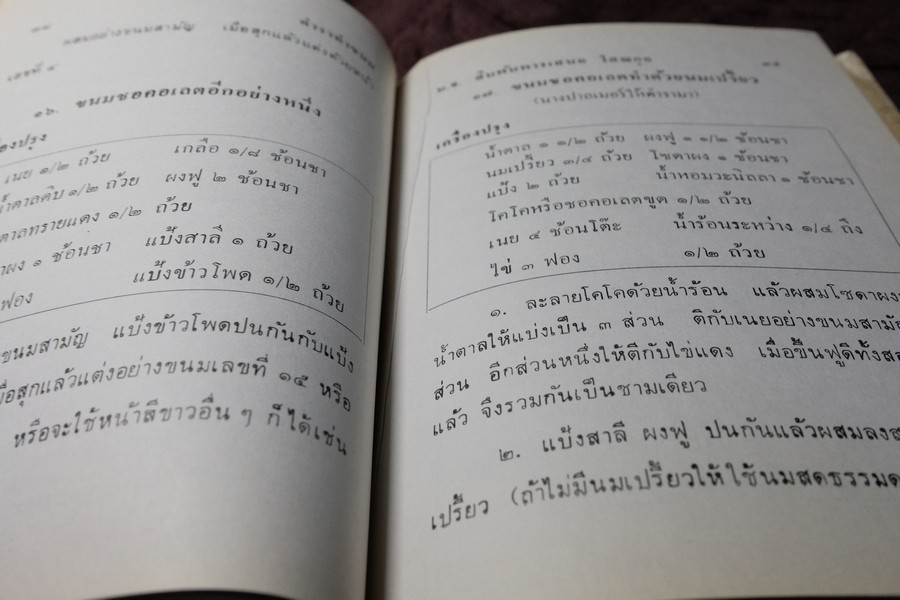 ตำราทำขนม
ผสมอย่างขนมสามัญ เมื่อสุกแล้วแต่งด้วยหน้า
เลขที่ ๔
๑๖. ขนมชอคอเลตอีกอย่างหนึ่ง
เนย ๑/๒ ถ้วย เกลือ ๑/๘ ช้อนชา
น้ำตาลดิบ ๑/๒ ถ้วย ผงฟู ๒ ช้อนชา
ตาลทรายแดง ๑/๒ ถ้วย
ผง ๑ ช้อนชา แป้งสาลี ๑ ถ้วย
ฟอง แป้งข้าวโพด ๑/๒ ถ้วย
ขนมสามัญ แป้งข้าวโพดปนกันกับแป้ง
เมื่อสุกแล้วแต่งอย่างขนมเลขที่ ๑๕ หรือ
หรือจะใช้หน้าสีขาวอื่น ๆ ก็ได้เช่น
ม.ร. สิบพันพารเสนอ โสณกุล ๑๙
๑๗. ขนมชอคอเลตทำด้วยนมเปรี้ยว
(นางปาลเมอร์ให้ตำรามา)
เครื่องปรุง
น้ำตาล ๑ ๑/๒ ถ้วย ผงฟู ๑ ๑/๒ ช้อนชา
นมเปรี้ยว ๓/๔ ถ้วย โซดาผง ๑ ช้อนชา
แป้ง ๒ ถ้วย น้ำหอมวะนิลลา ๑ ช้อนชา
โคโคหรือชอคอเลตขูด ๑/๒ ถ้วย
เนย ๔ ช้อนโต๊ะ น้ำร้อนระหว่าง ๑/๔ ถึง
ไข่ ๓ ฟอง ๑/๒ ถ้วย
๑. ละลายโคโคด้วยน้ำร้อน แล้วผสมโซดาผง
น้ำตาลให้แบ่งเป็น ๓ ส่วน ตีกับเนยอย่างขนมสามัญ
ส่วน อีกส่วนหนึ่งให้ตีกับไข่แดง เมื่อขึ้นฟูดีทั้งส
แล้ว จึงรวมกันเป็นชามเดียว
๒. แป้งสาลี ผงฟู ปนกันแล้วผสมลงส
เปรี้ยว (ถ้าไม่มีนมเปรี้ยวให้ใช้นมสดธรรมด